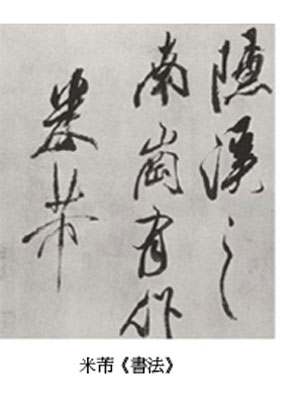 隱溪之
南崗有作
米芾
米芾《書法》